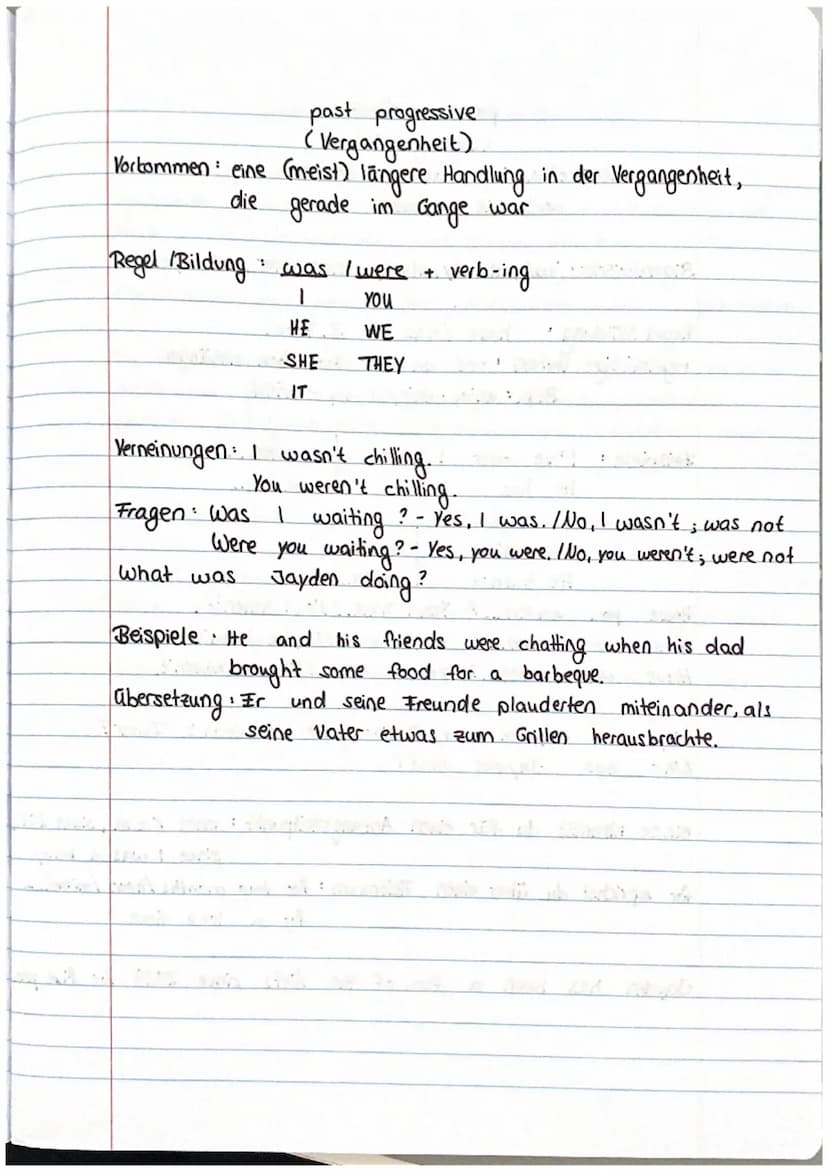 past progressive
(Vergangenheit)
Vorkommen: eine (meist) längere Handlung in der Vergangenheit,
die gerade im Gange war
Regel/Bildung: was / were + verb-ing
I YOU
HE WE
SHE THEY
IT
Verneinungen: I wasn't chilling.
You weren't chilling.
Fragen: Was I waiting? - Yes, I was. /No, I wasn't; was not
Were you waiting? - Yes, you were. /No, you weren't; were not
What was Jayden doing?
Beispiele: He and his friends were chatting when his dad
brought some food for a barbeque.
Übersetzung: Er und seine Freunde plauderten miteinander, als
seine Vater etwas zum Grillen herausbrachte.